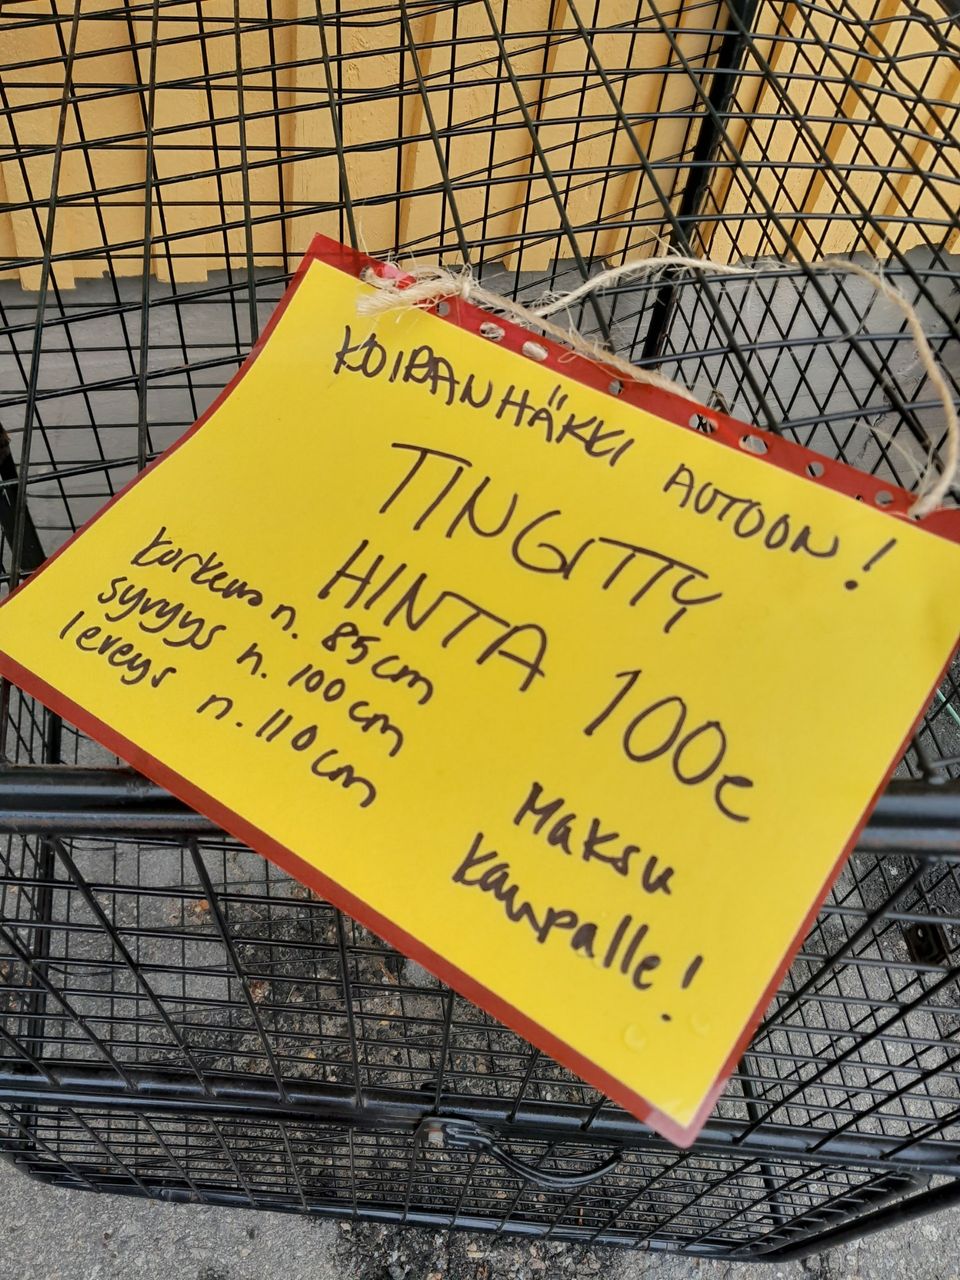 KOIRANHÄKKI AUTOON!
TINGITTY
HINTA 100e
korkeus n. 85 cm
syvyys n. 100 cm
leveys n. 110 cm
Maksu
kaupalle!